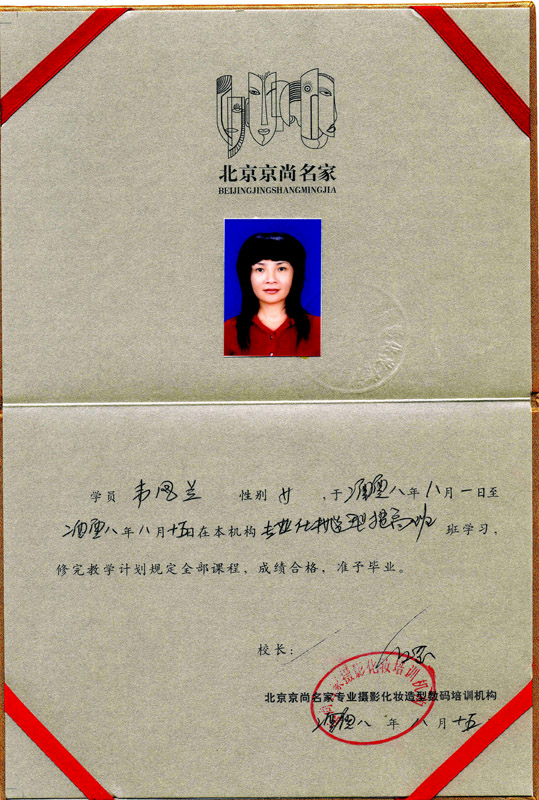 北京京尚名家
BEIJINGJINGSHANGMINGJIA
学员 韦图兰 性别 女 ,于 二〇〇八年八月一日至
二〇〇八年八月十五日在本机构 专业化妆造型提高班 班学习,
修完教学计划规定全部课程,成绩合格,准予毕业。
校长:
北京京尚名家专业摄影化妆造型数码培训机构
二〇〇八 年 八月十五